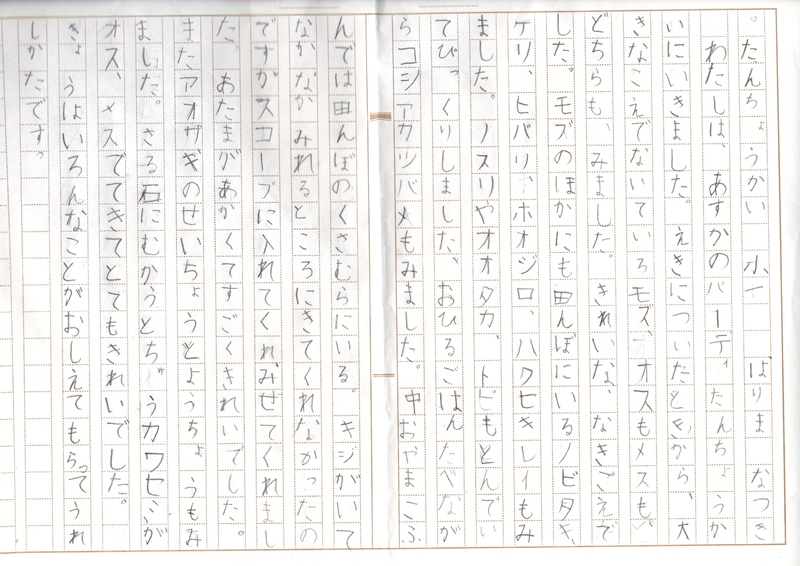 。たんちょうかい 小一 ばりま なつき
わたしは、あすかのバーディたんちょうか
いにいきました。えきについたときから、大
きなこえでないているモズ、オスもメスも、
どちらも、みました。きれいな、なきごえで
した。モズのほかにも田んぼにいるノビタキ、
ケリ、ヒバリ、ホオジロ、ハクセキレイもみ
ました。ノスリやオオタカ、トビもとんでい
てびっくりしました、おひるごはんたべなが
らコシアカツバメもみました。中おやまこふ
んでは田んぼのくさむらにいる。キジがいて
なかなかみれるところにきてくれなかったの
ですがスコープに入れてくれ、みせてくれまし
た。あたまがあかくてすごくきれいでした。
またアオサギのせいちょうとようちょうもみ
ました。さる石にむかうとちゅうカワセミが
オス、メスでてきてとてもきれいでした。
きょうはいろんなことがおしえてもらってうれ
しかたです。